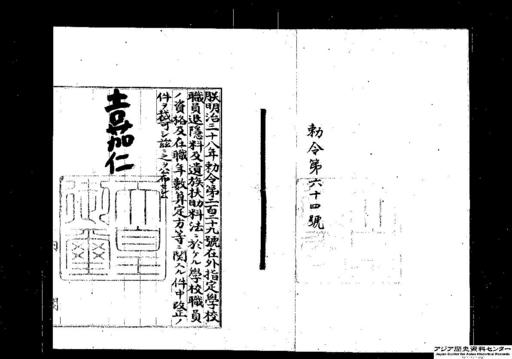 勅令第六十四號
朕明治三十八年勅令第二百二十九號在外指定學校
職員退隱料及遺族扶助料法ニ於ケル學校職員
ノ資格及在職年數算定方等ニ關スル件中改正ノ
件ヲ裁可シ茲ニ之ヲ公布セシム
嘉仁
天皇
御璽
内閣
アジア歴史資料センター
Japan Center for Asian Historical Records